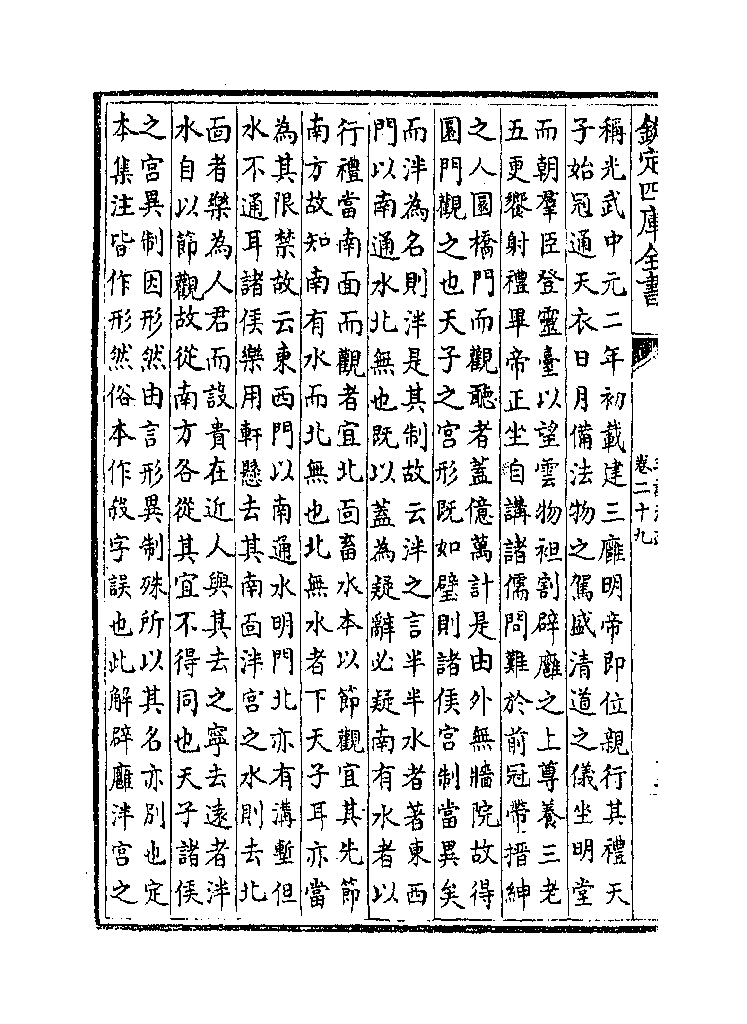 欽定四庫全書
卷二十九
稱光武中元二年初載建三廱明帝即位親行其禮天
子始冠通天衣日月備法物之駕盛清道之儀坐明堂
而朝羣臣登靈臺以望雲物袒割辟廱之上尊養三老
五更饗射禮畢帝正坐自講諸儒問難於前冠帶搢紳
之人圜橋門而觀聽者蓋億萬計是由外無牆院故得
圜門觀之也天子之宮形既如璧則諸侯宮制當異矣
而泮為名則泮是其制故云泮之言半半水者著東西
門以南通水北無也既以蓋為疑辭必疑南有水者以
行禮當南面而觀者宜北面畜水本以節觀宜其先節
南方故知南有水而北無也北無水者下天子耳亦當
為其限禁故云東西門以南通水明門北亦有溝塹但
水不通耳諸侯樂用軒懸去其南面泮宮之水則去北
面者樂為人君而設貴在近人與其去之寧去遠者泮
水自以節觀故從南方各從其宜不得同也天子諸侯
之宮異制因形然由言形異制殊所以其名亦別也定
本集注皆作形然俗本作殺字誤也此解辟廱泮宮之